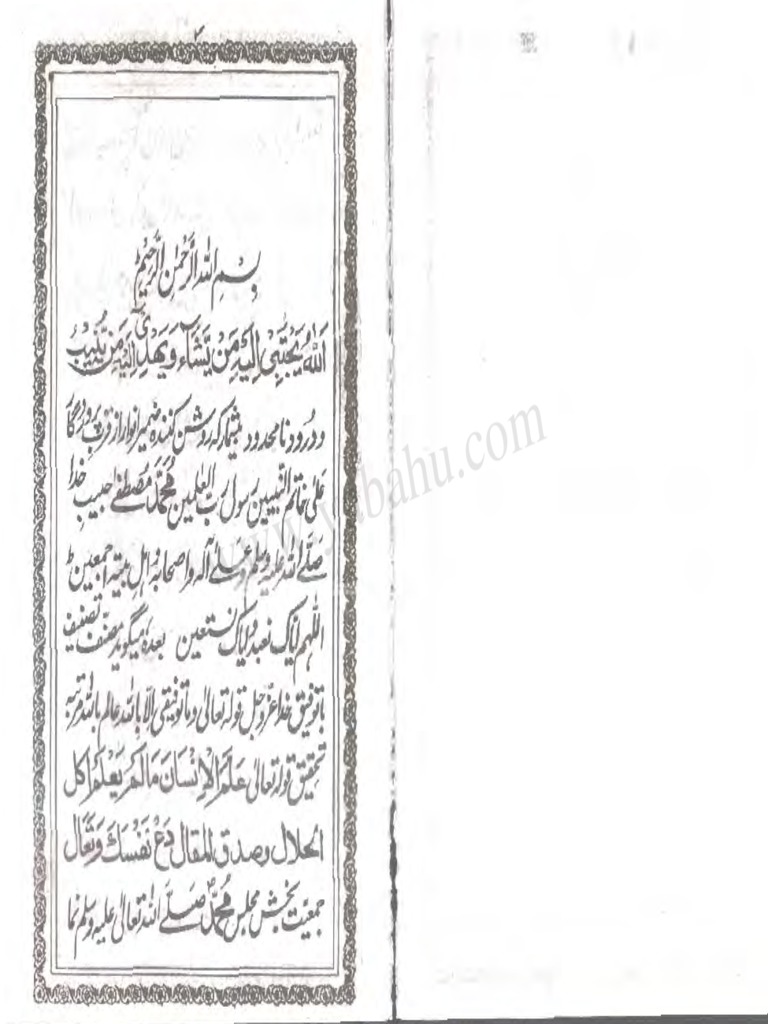 ۲
بِسْمِ اللهِ الرَّحْمٰنِ الرَّحِيْمِ
اَللهُ يَجْتَبِيْ اِلَيْهِ مَنْ يَّشَآءُ وَيَهْدِيْ اِلَيْهِ مَنْ يُّنِيْبُ
و درود نامحدود بیشمار که روشن کننده ضمیر انوار از قرب پروردگار
عَلٰى خاتم النبیین رسول رب العٰلمین مُحَمَّدٌ مصطفٰے حبیب خدا
صَلَّے اللہ علیہ وسلم وعلٰے آلہ واصحابہ واہل بیتہ اجمعین ط
اللهم ایاک نعبد وایاک نستعین بعدہٗ میگوید مصنف تصنیف
با توفیق خدا عزوجل قولہ تعالیٰ وما توفیقی الا باللہ عالم باللہ مرتبہ
تحقیق قولہ تعالیٰ عَلَّمَ الْاِنْسَانَ مَالَمْ يَعْلَمْ اكل
الحلال وصدق المقال دَعْ نَفْسَكَ وَتَعَال
جمعیت بخش مجلس مُحَمَّدٌ صَلَّے اللہ تعالیٰ علیہ وسلم نما
www.yabahu.com